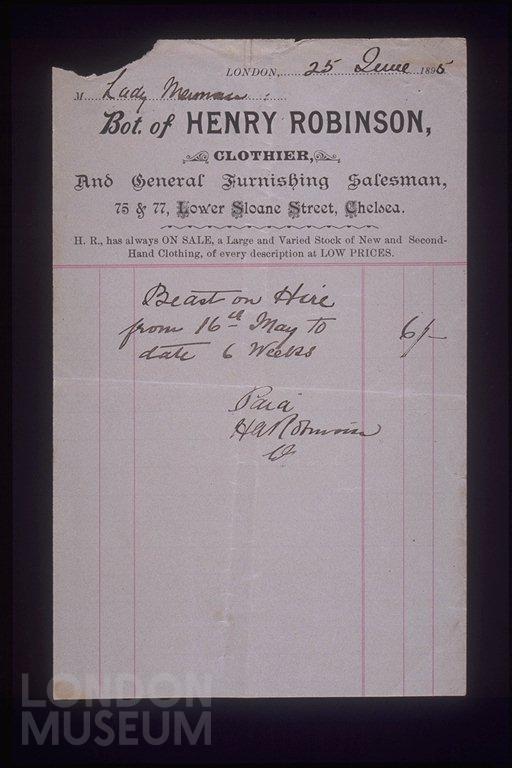 LONDON, 25 June 1895
M Lady
Bot. of HENRY ROBINSON,
CLOTHIER,
And General Furnishing Salesman,
75 & 77, Lower Sloane Street, Chelsea.
H. R., has always ON SALE, a Large and Varied Stock of New and Second-
Hand Clothing, of every description at LOW PRICES.
on Hire
from 16th May to 6/-
date 6 Weeks
Paid
HARobinson
LONDON
MUSEUM